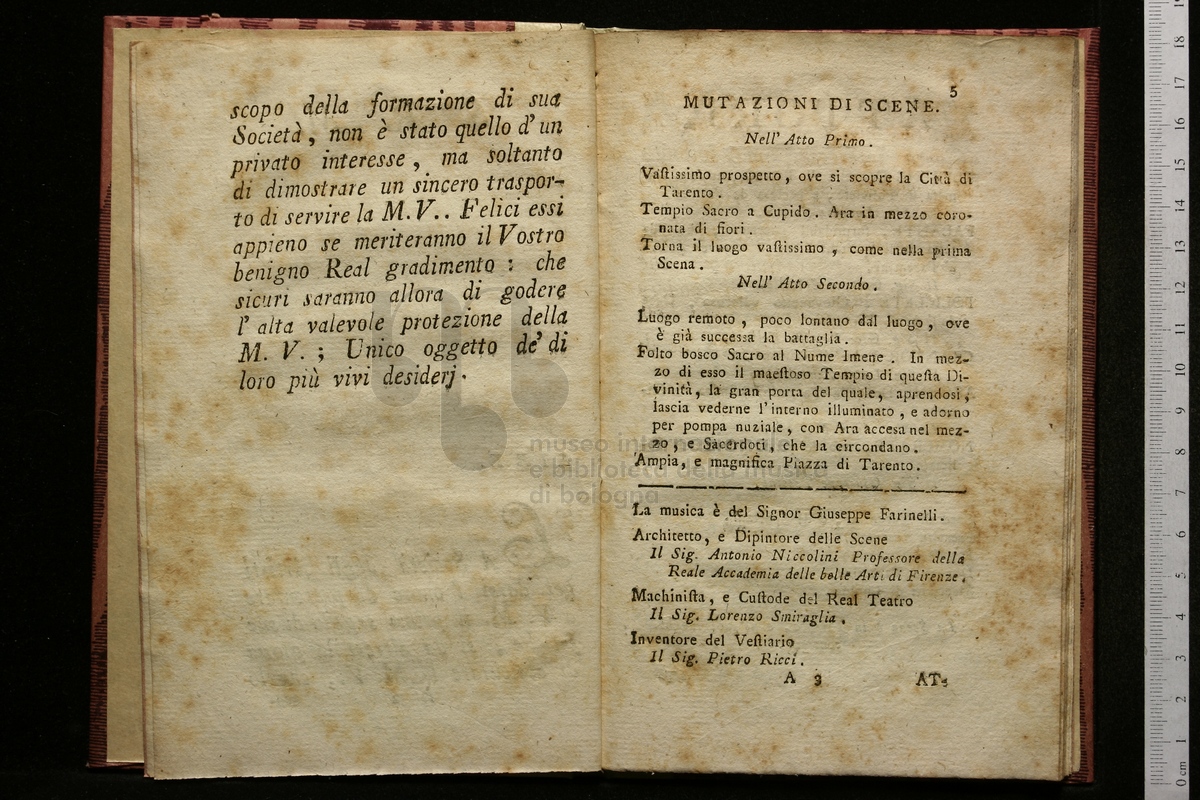 scopo della formazione di sua
Società, non è stato quello d'un
privato interesse, ma soltanto
di dimostrare un sincero traspor-
to di servire la M. V.. Felici essi
appieno se meriteranno il Vostro
benigno Real gradimento : che
sicuri saranno allora di godere
l'alta valevole protezione della
M. V. ; Unico oggetto de' di
loro più vivi desiderj.
5
MUTAZIONI DI SCENE.
Nell' Atto Primo.
Vaſtissimo prospetto, ove si scopre la Città di
Tarento.
Tempio Sacro a Cupido. Ara in mezzo coro-
nata di fiori.
Torna il luogo vaſtissimo, come nella prima
Scena.
Nell' Atto Secondo.
Luogo remoto, poco lontano dal luogo, ove
è già successa la battaglia.
Folto bosco Sacro al Nume Imene. In mez-
zo di esso il maeſtoso Tempio di queſta Di-
vinità, la gran porta del quale, aprendosi,
lascia vederne l'interno illuminato, e adorno
per pompa nuziale, con Ara accesa nel mez-
zo, e Sacerdoti, che la circondano.
Ampia, e magnifica Piazza di Tarento.
La musica è del Signor Giuseppe Farinelli.
Architetto, e Dipintore delle Scene
Il Sig. Antonio Niccolini Professore della
Reale Accademia delle belle Arti di Firenze.
Machiniſta, e Cuſtode del Real Teatro
Il Sig. Lorenzo Smiraglia.
Inventore del Veſtiario
Il Sig. Pietro Ricci.
A 3 AT-
museo internazionale
e biblioteca della musica
di bologna
0 cm 1 2 3 4 5 6 7 8 9 10 11 12 13 14 15 16 17 18 19